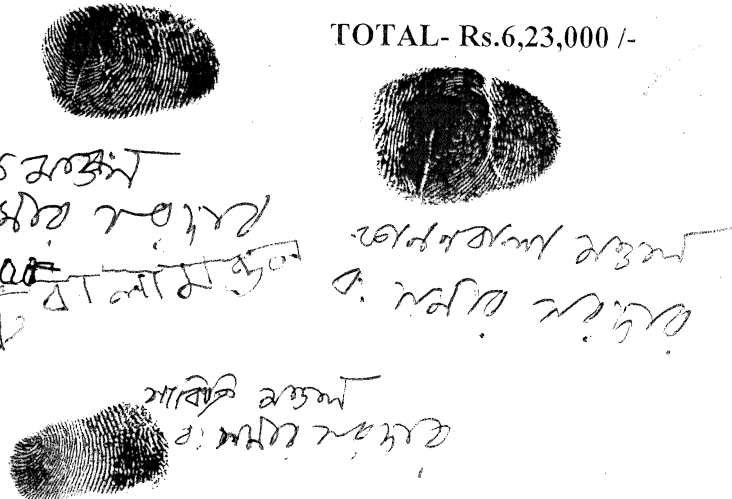 TOTAL- Rs.6,23,000 /-
মণ্ডল
সরদার
বালা মন্ডল
মণ্ডল
ব: সমীর সরদার
সাবিত্রী মণ্ডল
ব: সমীর সরদার